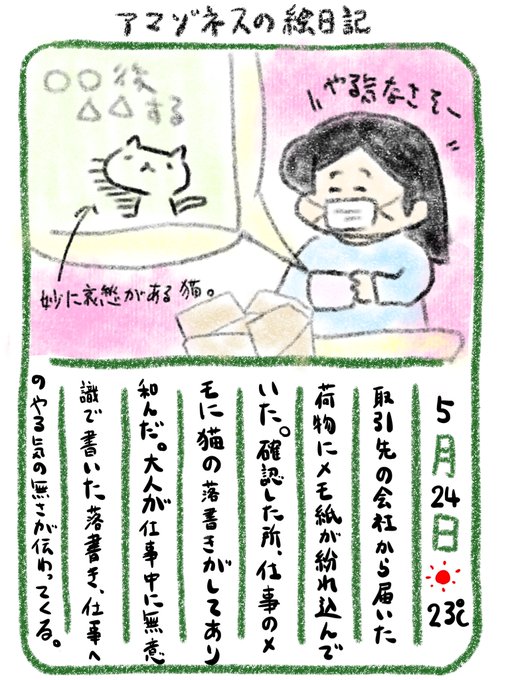 アマゾネスの絵日記
○○後
△△する
やる気なさそ〜
妙に哀愁がある猫。
5月24日 23℃
取引先の会社から届いた
荷物にメモ紙が紛れ込んで
いた。確認した所、仕事のメ
モに猫の落書きがしてあり
和んだ。大人が仕事中に無意
識で書いた落書き、仕事へ
のやる気の無さが伝わってくる。